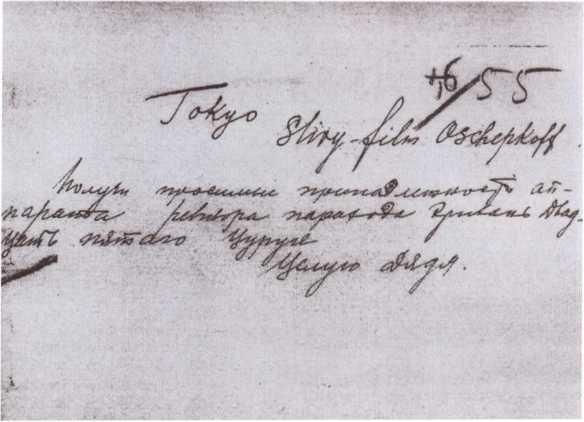 +,6 / 55
Tokyo
Slivy-film Oschepkoff
Получи посылкы принадлежность ап-
парата ревизора парохода Эривань Двад-
цать пятаго Цуруге
Целую Дядя.